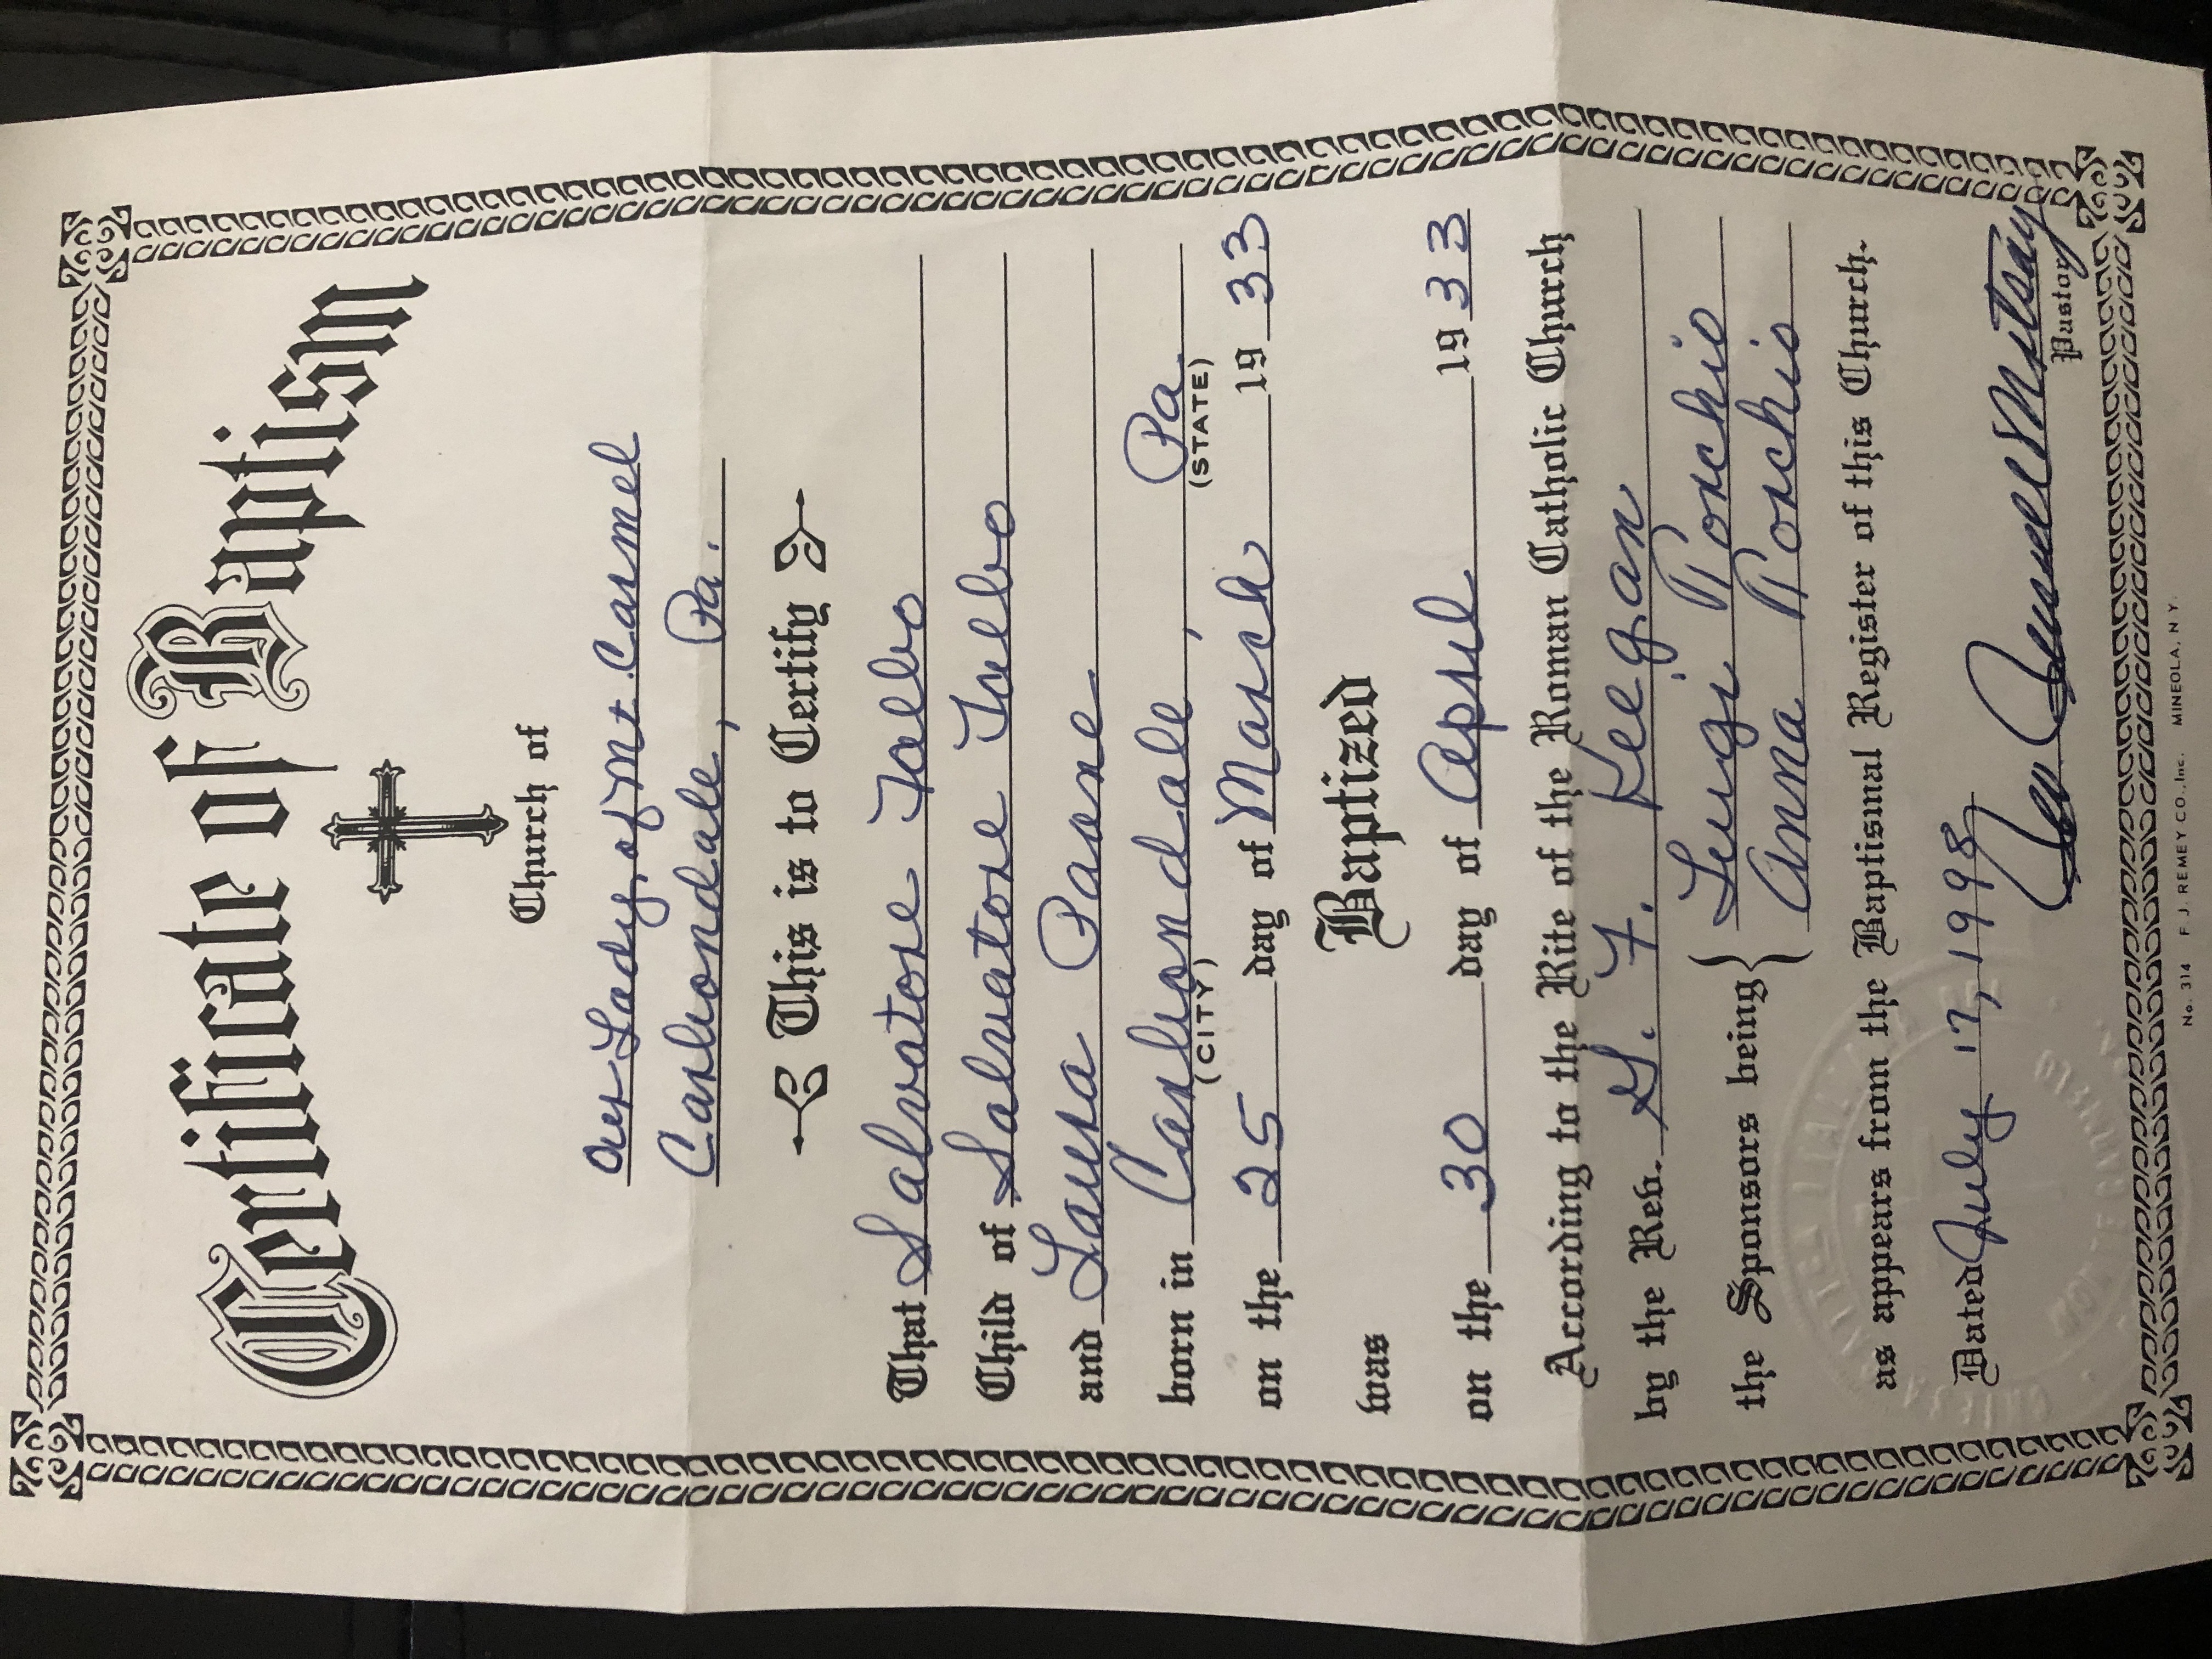 Certificate of Baptism
Church of
Our Lady of Mt Carmel
Carbondale, Pa.
This is to Certify
That Salvatore Falbo
Child of Salvatore Falbo
and Laura Paone
born in Carbondale, Pa
(CITY) (STATE)
on the 25 day of March 1933
was Baptized
on the 30 day of April 1933
According to the Rite of the Roman Catholic Church
by the Rev. G. F. Keegan
the Sponsors being { Luigi Torchio
Anna Torchio
as appears from the Baptismal Register of this Church.
Dated July 17, 1998
Rev
Pastor
No. 314 F. J. REMEY CO., Inc. MINEOLA, N. Y.